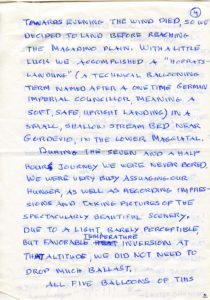 4
TOWARDS EVENING THE WIND DIED, SO WE
DECIDED TO LAND BEFORE REACHING
THE MAGADINO PLAIN. WITH A LITTLE
LUCK WE ACCOMPLISHED A "HOFRATS-
LANDUNG" (A TECHNICAL BALLOONING
TERM NAMED AFTER A ONE TIME GERMAN
IMPERIAL COUNCILLOR MEANING A
SOFT, SAFE, UPRIGHT LANDING) IN A
SMALL, SHALLOW STREAM BED NEAR
GORDEVIO, IN THE LOWER MAGGIATAL.
DURING THE SEVEN AND A HALF
HOURS JOURNEY WE WERE NEVER BORED.
WE WERE VERY BUSY ASSUAGING OUR
HUNGER, AS WELL AS RECORDING IMPRES-
SIONS AND TAKING PICTURES OF THE
SPECTACULARLY BEAUTIFUL SCENERY.
DUE TO A LIGHT, BARELY PERCEPTIBLE,
TEMPERATURE
BUT FAVORABLE INVERSION AT
THAT ALTITUDE, WE DID NOT NEED TO
DROP MUCH BALLAST.
ALL FIVE BALLOONS OF THIS